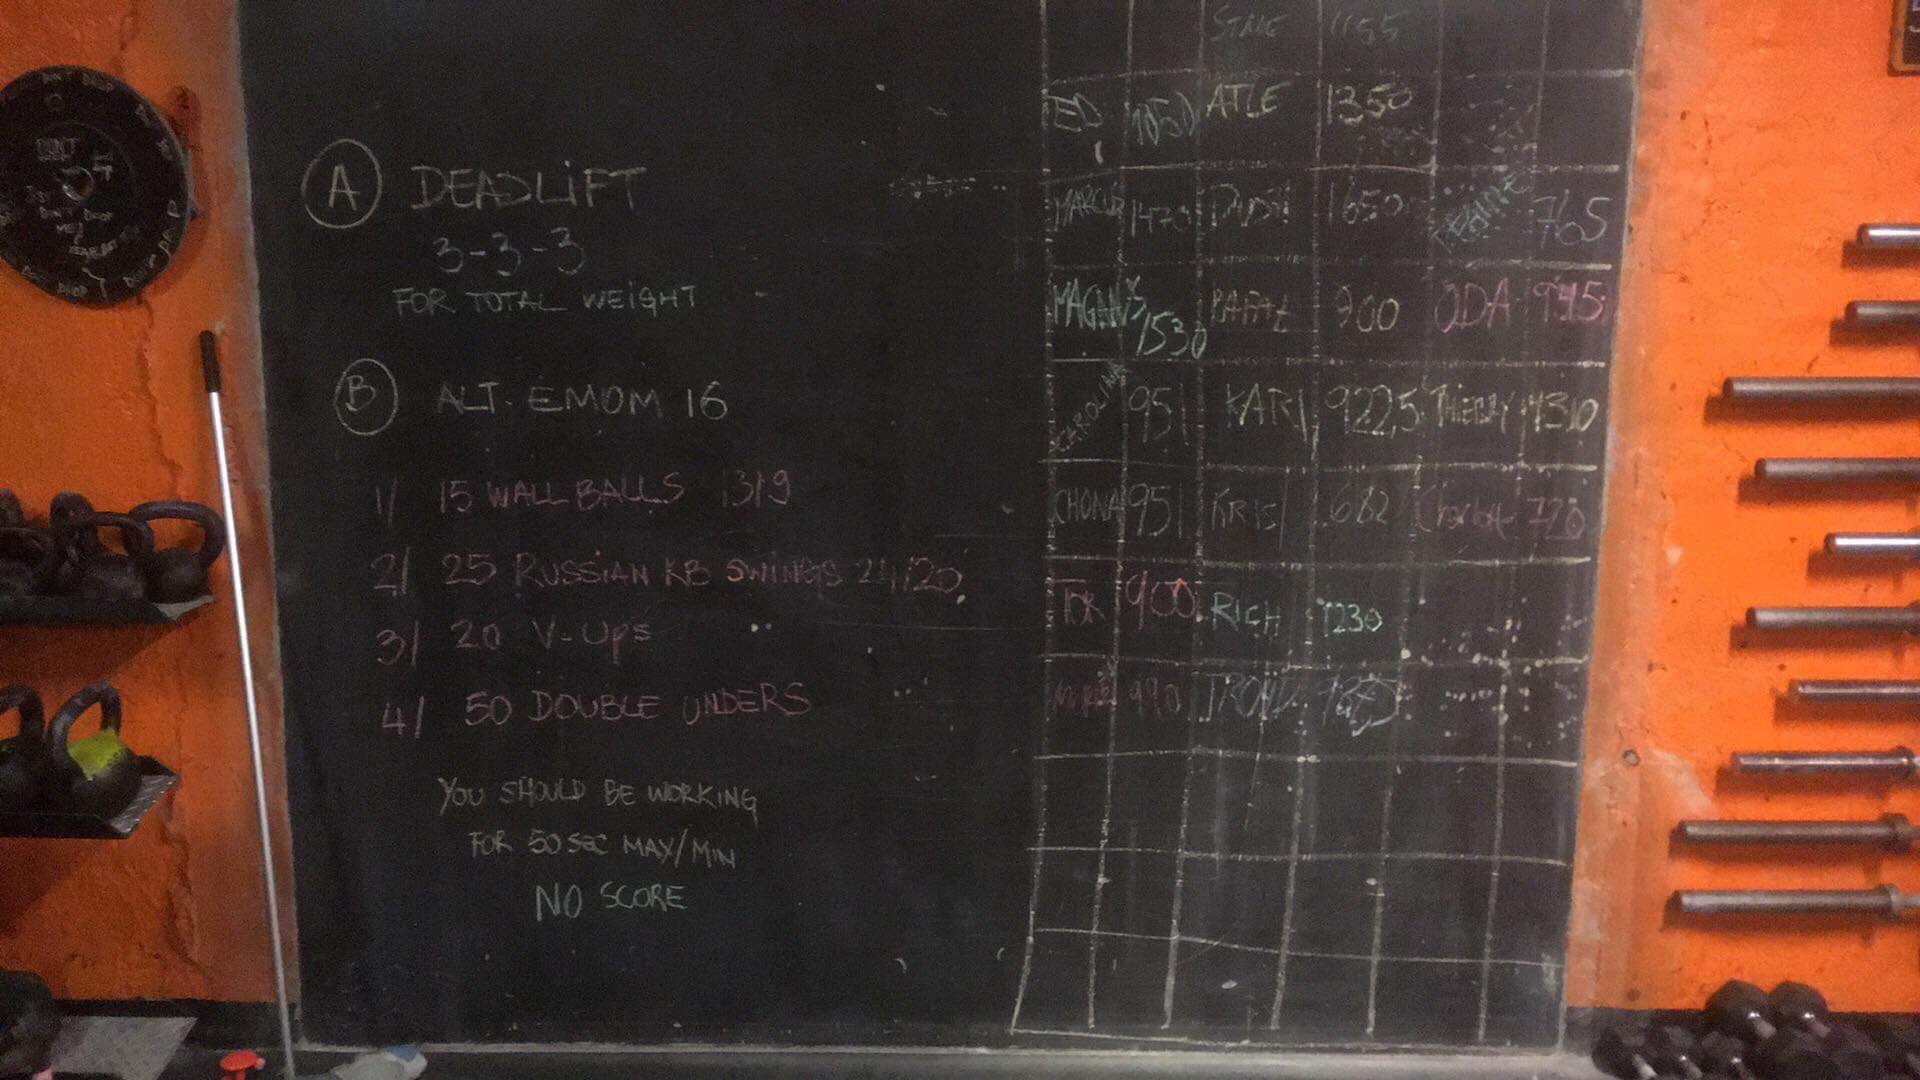 A DEADLIFT
3-3-3
FOR TOTAL WEIGHT
B ALT. EMOM 16
1/ 15 WALLBALLS 13/9
2/ 25 RUSSIAN KB SWINGS 24/20
3/ 20 V-Ups
4/ 50 DOUBLE UNDERS
YOU SHOULD BE WORKING
FOR 50 SEC MAX/MIN
NO SCORE
1155
TED 1050 ATLE 1350
MARCUS 1470 1650 765
MAGNUS 1530 900 ODA 945
CAROLINA 951 KARI 922,5 THIERRY 1310
CHONA 951 KRIS 682 720
TOR 900 RICH 1230
990 TROND